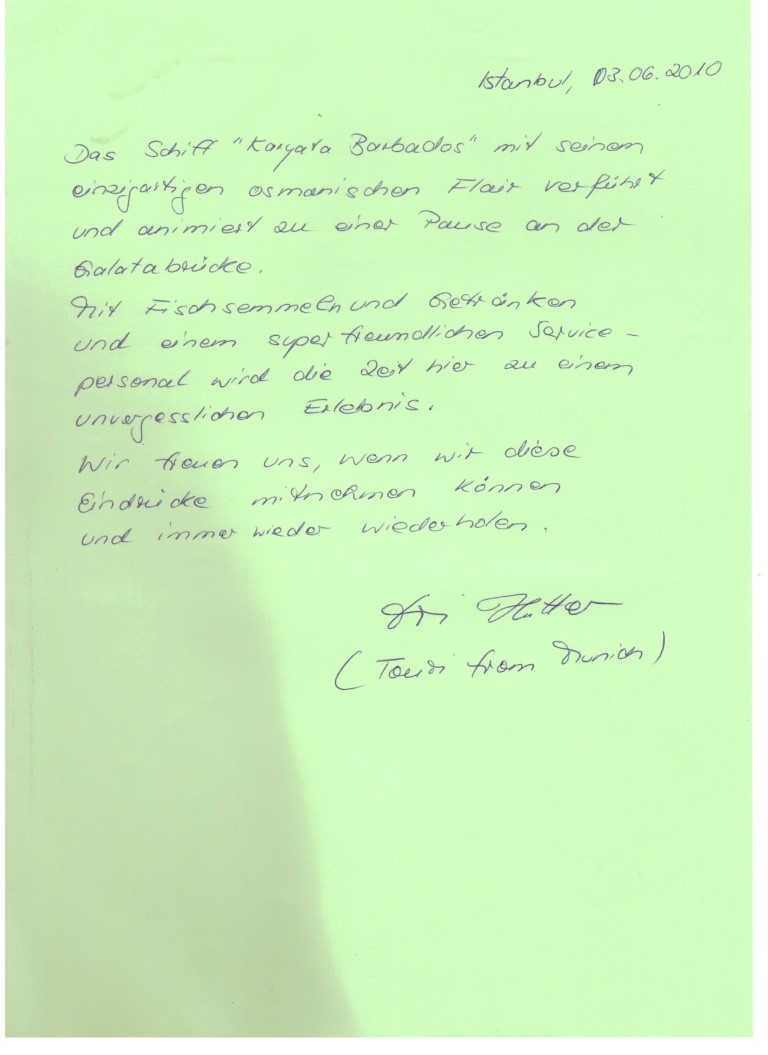 Istanbul, 03.06.2010
Das Schiff "Karyata Barbados" mit seinem
einzigartigen osmanischen Flair verführt
und animiert zu einer Pause an der
Galatabrücke.
Mit Fischsemmeln und Getränken
und einem super freundlichen Service-
personal wird die Zeit hier zu einem
unvergesslichen Erlebnis.
Wir freuen uns, wenn wir diese
Eindrücke mitnehmen können
und immer wieder wiederholen.
(Touri from Munich)